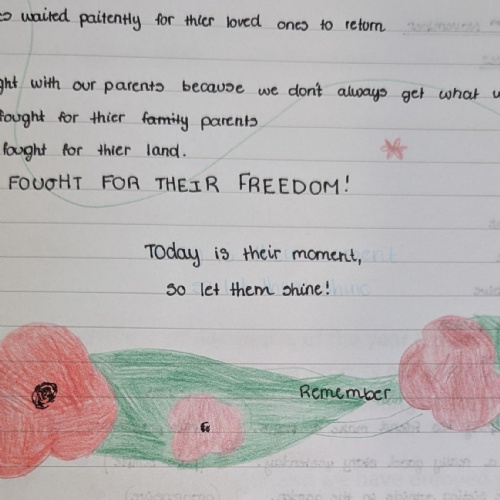 waited paitently for thier loved ones to return
with our parents because we don't always get what
fought for thier family parents
fought for thier land.
FOUGHT FOR THEIR FREEDOM!
TOday is their moment,
so let them shine!
Remember